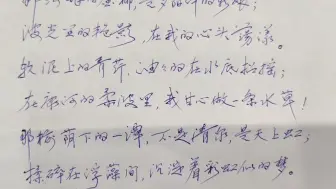 波光里的艳影,在我的心头荡漾。
软泥上的青荇,油々的在水底招摇;
在康河的柔波里,我甘心做一条水草!
那榆荫下的一潭,不是清泉,是天上虹;
揉碎在浮藻间,沉淀着彩虹似的梦。